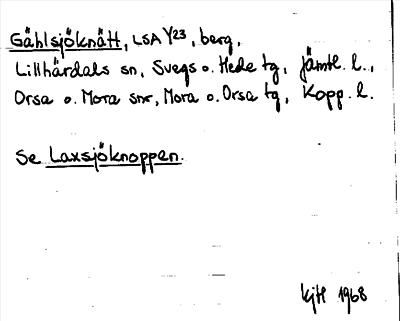 Gåhlsjöknätt, LSA Y23, berg,
Lillhärdals sn, Svegs o. Hede tg, Jämtl. l.,
Orsa o. Mora snr, Mora o. Orsa tg, Kopp. l.
Se Laxsjöknoppen.
KjH 1968